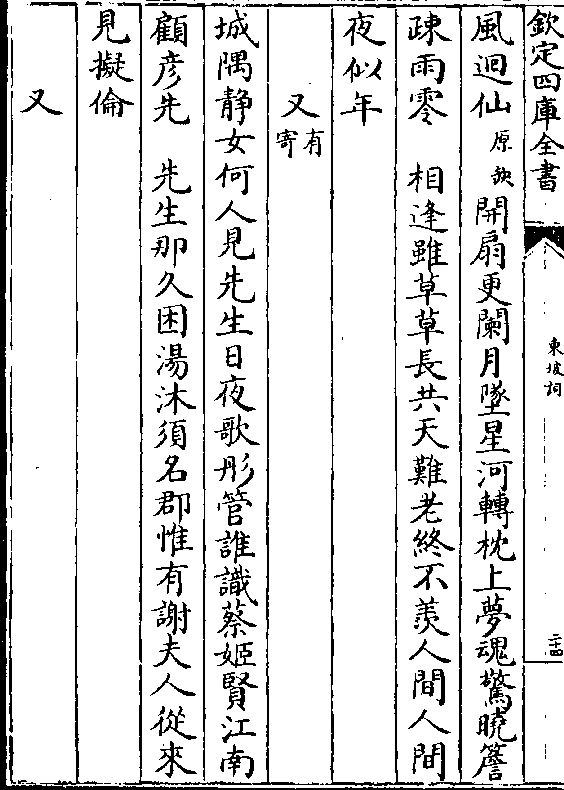 欽定四庫全書
東坡詞
二十四
風迴仙原缺開扇更闌月墜星河轉枕上夢魂驚曉簷
疎雨零 相逢雖草草長共天難老終不羨人間人間
夜似年
又有寄
城隅静女何人見先生日夜歌彤管誰識蔡姬賢江南
顧彦先 先生那久困湯沐須名郡惟有謝夫人從來
見擬倫
又